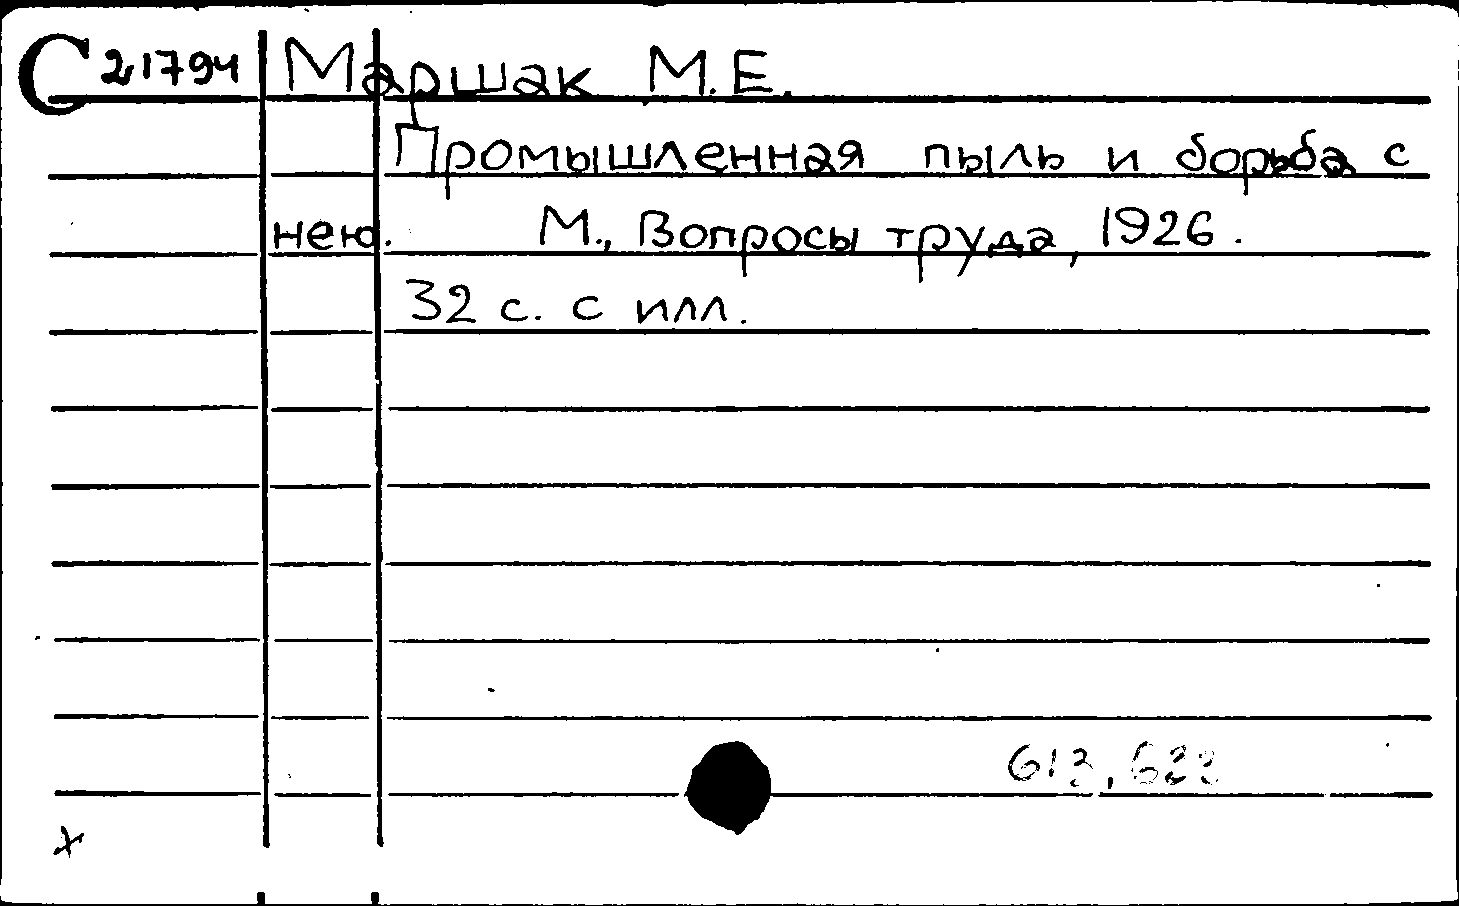 С 21794 Маршак М.Е.
Промышленная пыль и борьба с
нею. М., Вопросы труда, 1926.
32 с. с илл.